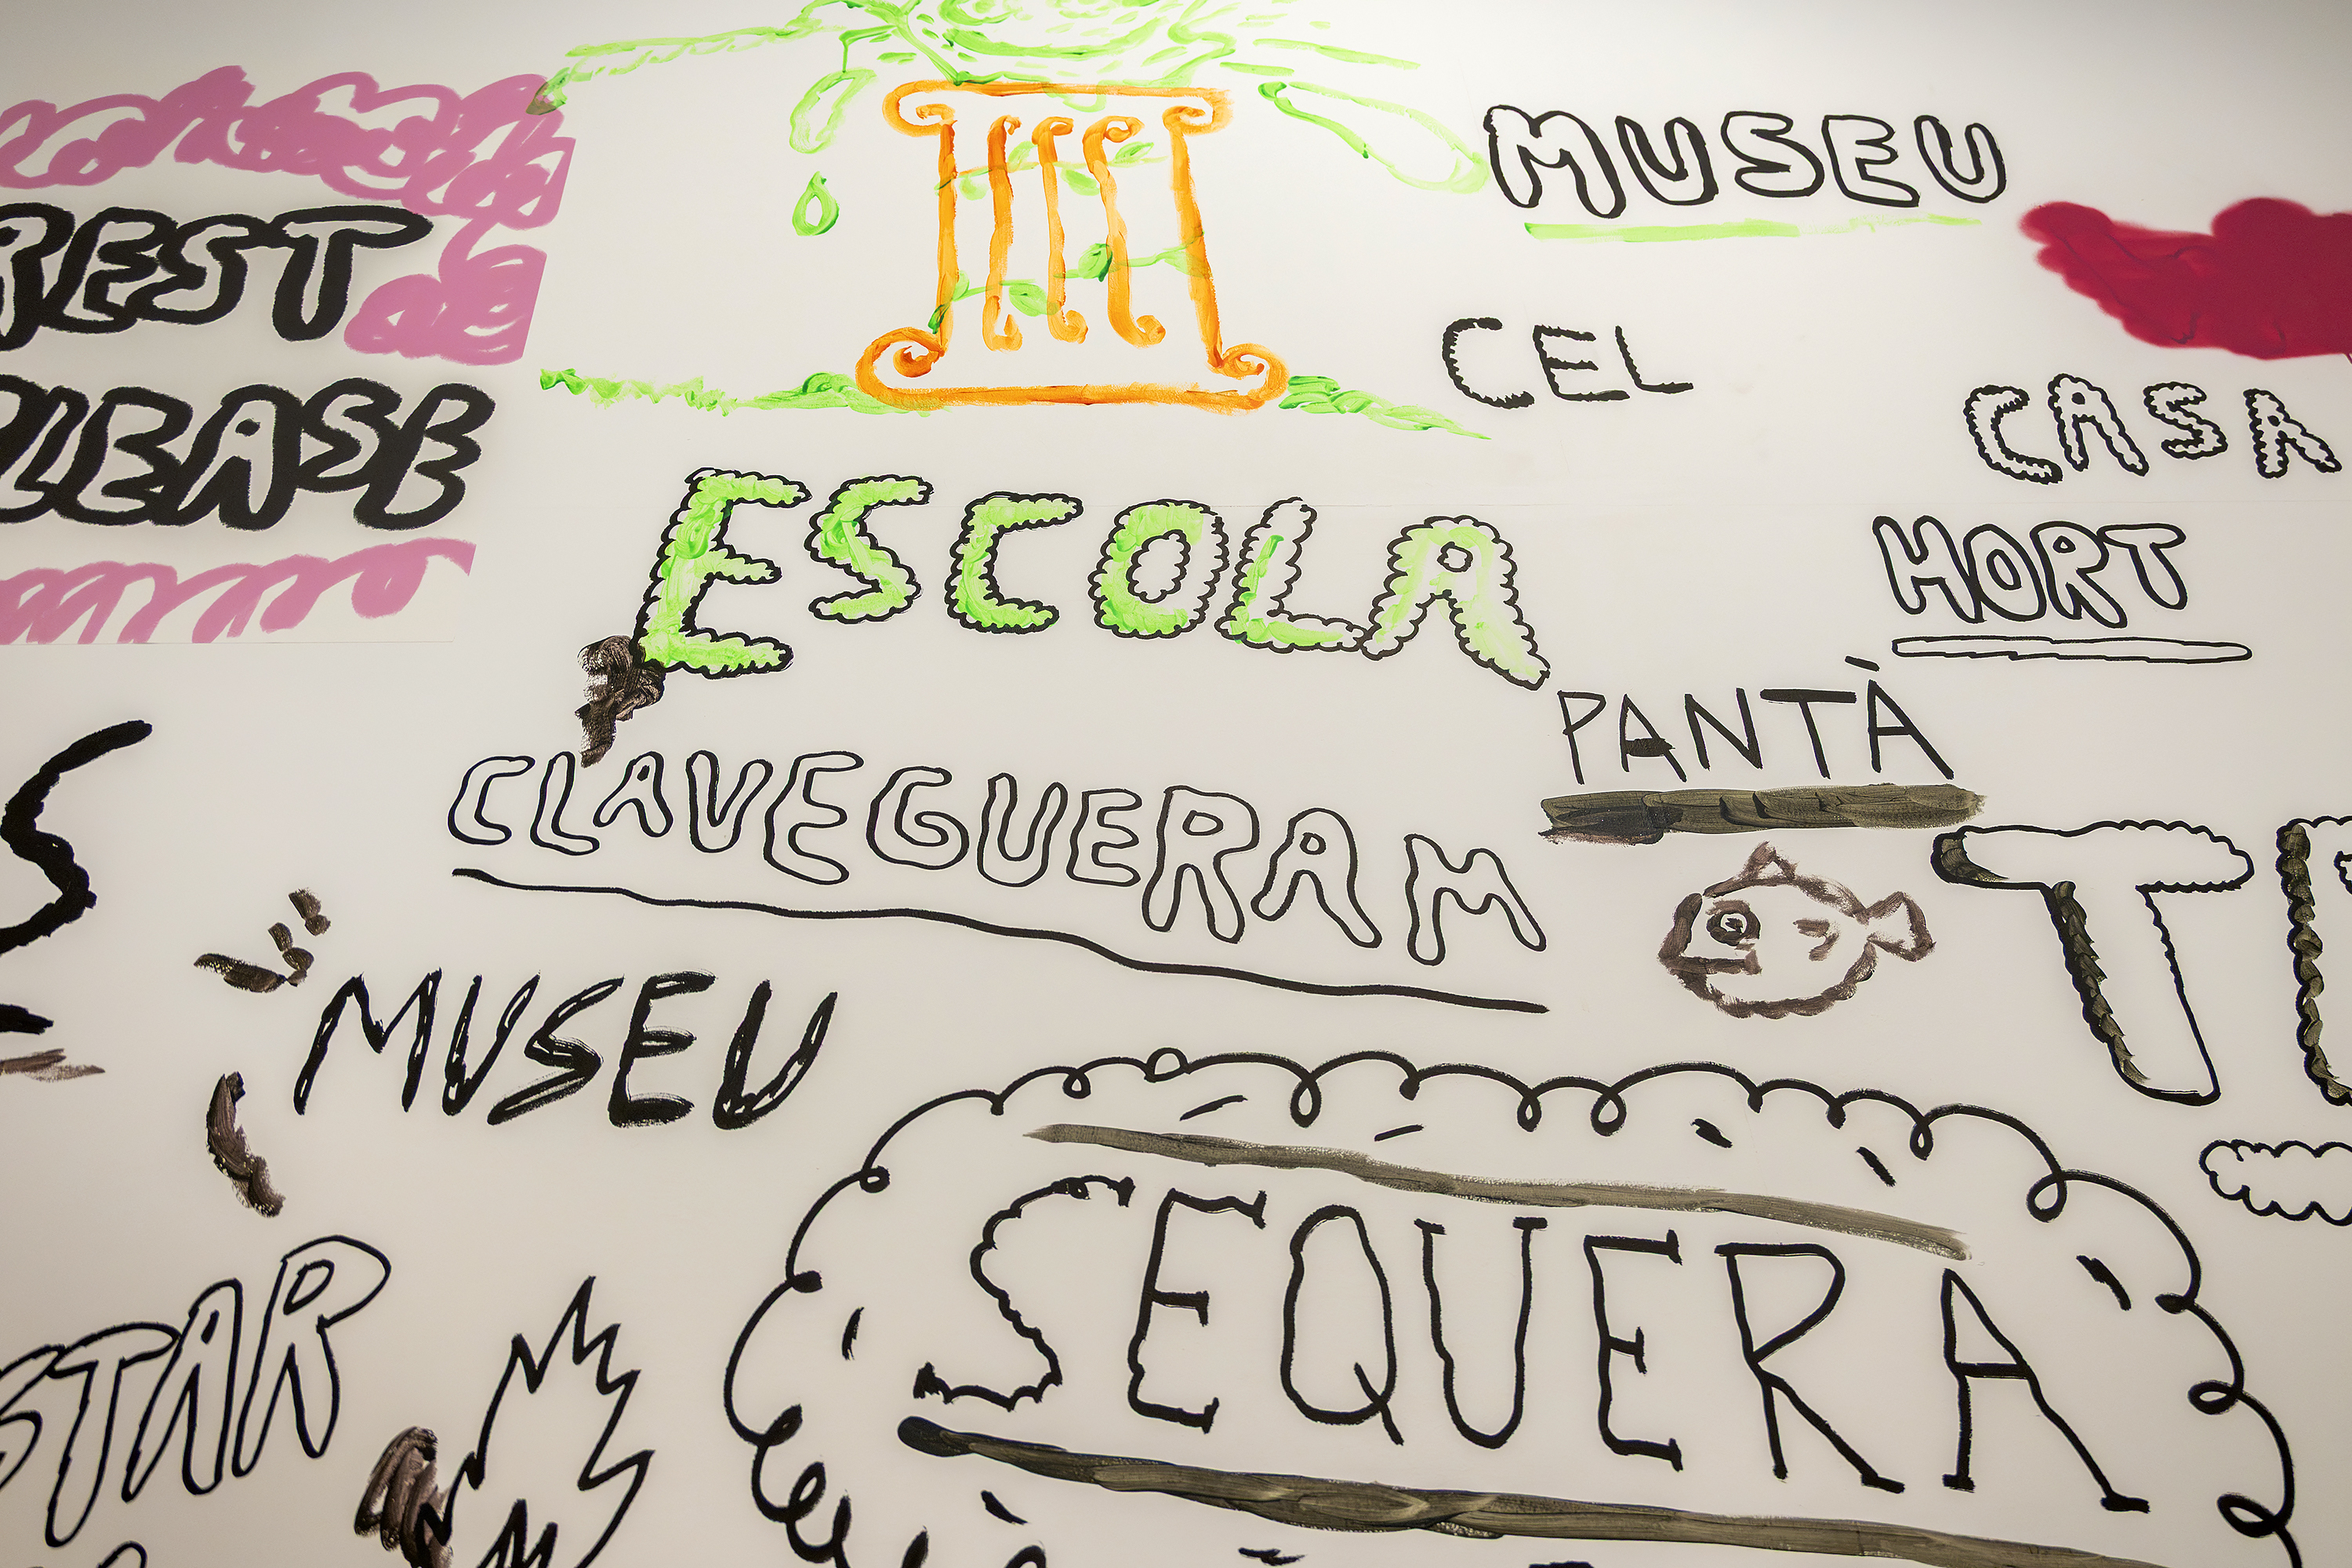 MUSEU
REST
PLEASE
CEL
CASA
ESCOLA
HORT
PANTÀ
CLAVEGUERAM
MUSEU
SEQUERA